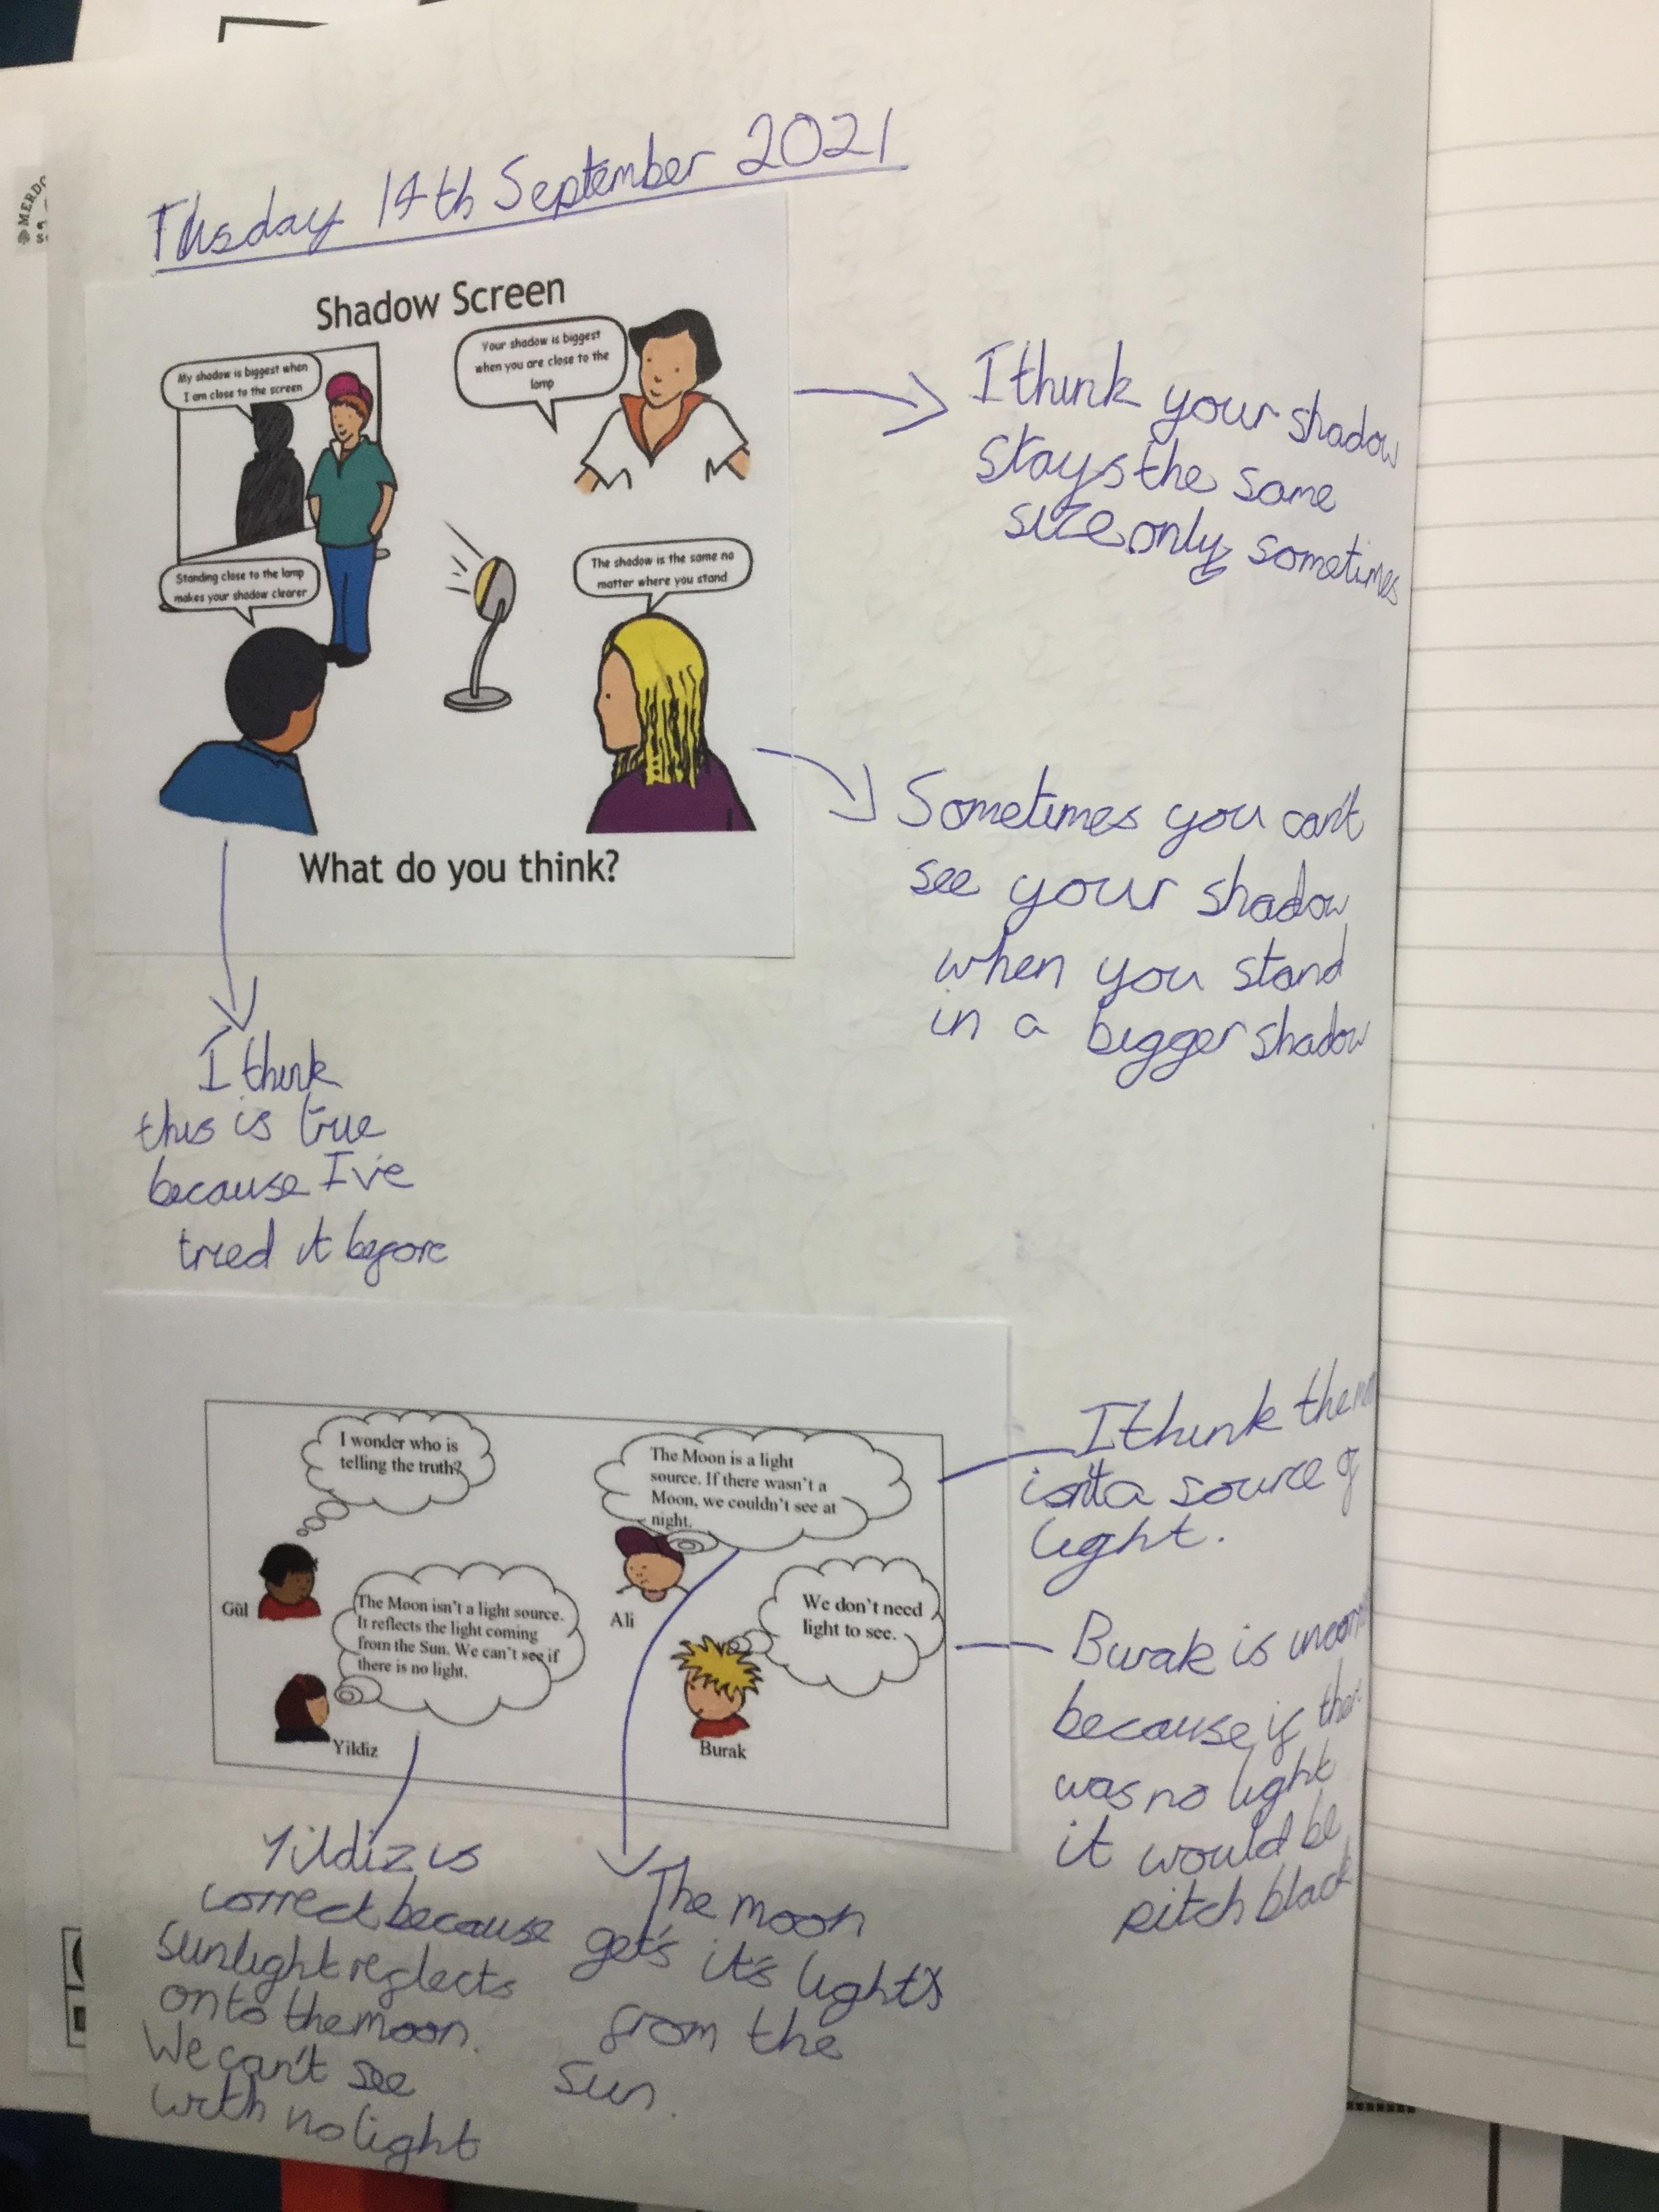 Tuesday 14th September 2021
MERDO
Shadow Screen
My shadow is biggest when
I am close to the screen
Your shadow is biggest
when you are close to the
lamp
Standing close to the lamp
makes your shadow clearer
The shadow is the same no
matter where you stand
What do you think?
I think your shadow
stays the same
size only sometimes
Sometimes you can't
see your shadow
when you stand
in a bigger shadow
I think
this is true
because I've
tried it before
I wonder who is
telling the truth?
Gül
The Moon is a light
source. If there wasn't a
Moon, we couldn't see at
night.
Ali
The Moon isn't a light source.
It reflects the light coming
from the Sun. We can't see if
there is no light.
Yildiz
We don't need
light to see.
Burak
I think the
isn't a source of
light.
Burak is
because if
was no light
it would be
pitch black
Yildiz is
correct because
sunlight reflects
onto the moon.
We can't see
with no light
The moon
get's it's light
from the
sun.